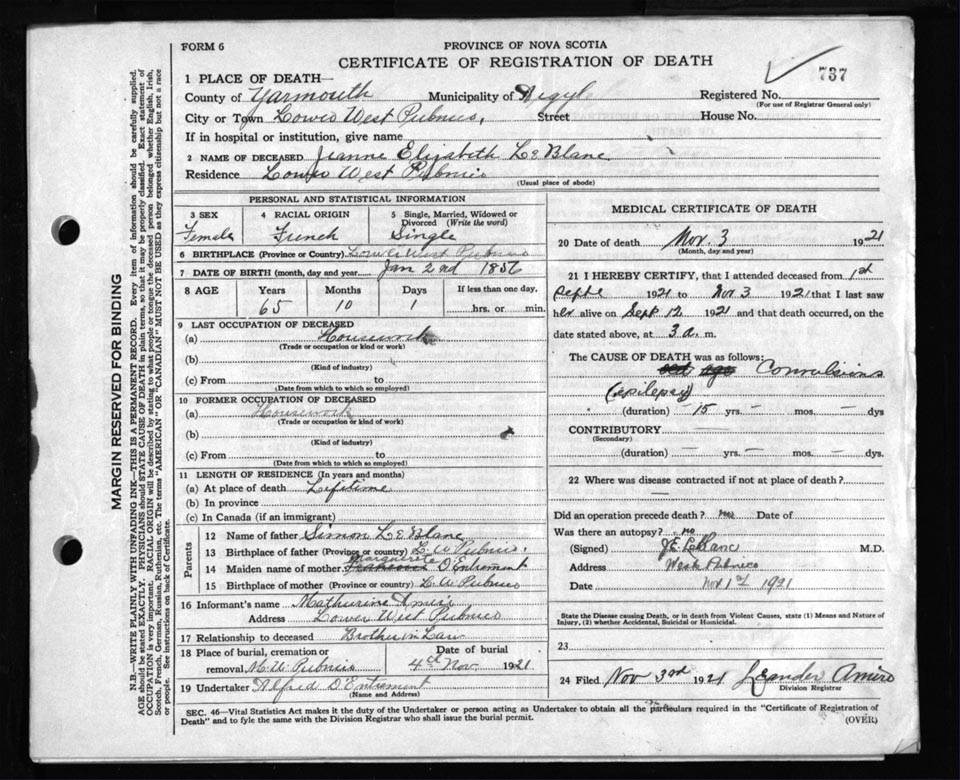 FORM 6
PROVINCE OF NOVA SCOTIA
CERTIFICATE OF REGISTRATION OF DEATH
737
1 PLACE OF DEATH—
County of Yarmouth Municipality of Argyle Registered No.
(For use of Registrar General only)
City or Town Lower West Pubnico, Street House No.
If in hospital or institution, give name
2 NAME OF DECEASED Jeanne Elizabeth Le Blanc
Residence Lower West Pubnico
(Usual place of abode)
PERSONAL AND STATISTICAL INFORMATION
3 SEX 4 RACIAL ORIGIN 5 Single, Married, Widowed or Divorced (Write the word)
Female French Single
6 BIRTHPLACE (Province or Country) Lower West Pubnico
7 DATE OF BIRTH (month, day and year) Jan 2nd 1856
8 AGE Years Months Days If less than one day,
65 10 1 hrs. or min.
9 LAST OCCUPATION OF DECEASED
(a) Housework
(Trade or occupation or kind of work)
(b)
(Kind of industry)
(c) From to
(Date from which to which so employed)
10 FORMER OCCUPATION OF DECEASED
(a) Housework
(Trade or occupation or kind of work)
(b)
(Kind of industry)
(c) From to
(Date from which to which so employed)
11 LENGTH OF RESIDENCE (In years and months)
(a) At place of death Lifetime
(b) In province
(c) In Canada (if an immigrant)
Parents
12 Name of father Simon Le Blanc
13 Birthplace of father (Province or country) L. W Pubnico.
14 Maiden name of mother Marguerite D'Entremont
15 Birthplace of mother (Province or country) L. W Pubnico
16 Informant's name Mathurin Amiro
Address Lower West Pubnico
17 Relationship to deceased Brother in Law
18 Place of burial, cremation or removal M. W. Pubnico Date of burial 4th Nov. 1921
19 Undertaker Alfred D'Entremont
(Name and Address)
MEDICAL CERTIFICATE OF DEATH
20 Date of death Nov. 3 1921
21 I HEREBY CERTIFY, that I attended deceased from 1st
Septe 1921 to Nov 3 1921 that I last saw
her alive on Sept 12 1921 and that death occurred, on the
date stated above, at 3 a. m.
The CAUSE OF DEATH was as follows:
old age Convulsions
(epilepsy)
(duration) — 15 yrs. — mos. — dys
CONTRIBUTORY —
(Secondary)
(duration) — yrs. — mos. — dys.
22 Where was disease contracted if not at place of death?
—
Did an operation precede death? no Date of
Was there an autopsy? no
(Signed) J.E. LeBlanc M.D.
Address West Pubnico
Date Nov 1921
State the Disease causing Death, or in death from Violent Causes, state (1) Means and Nature of
Injury, (2) whether Accidental, Suicidal or Homicidal.
23
24 Filed Nov 3rd 1921 Leander Amiro
Division Registrar
SEC. 46—Vital Statistics Act makes it the duty of the Undertaker or person acting as Undertaker to obtain all the particulars required in the "Certificate of Registration of
Death" and to fyle the same with the Division Registrar who shall issue the burial permit.
(OVER)
MARGIN RESERVED FOR BINDING
N.B.—WRITE PLAINLY WITH UNFADING INK—THIS IS A PERMANENT RECORD. Every item of information should be carefully supplied.
AGE should be stated EXACTLY. PHYSICIANS should STATE CAUSE OF DEATH in plain terms, so that it may be properly classified. Exact statement of
OCCUPATION is very important. RACIAL ORIGIN will be described by stating to what people or tongue the deceased person belonged whether English, Irish,
Scotch, French, German, Russian, Ruthenian, etc. The terms "AMERICAN" OR "CANADIAN" MUST NOT BE USED as they express citizenship but not a race
or people. See instructions on back of Certificate.